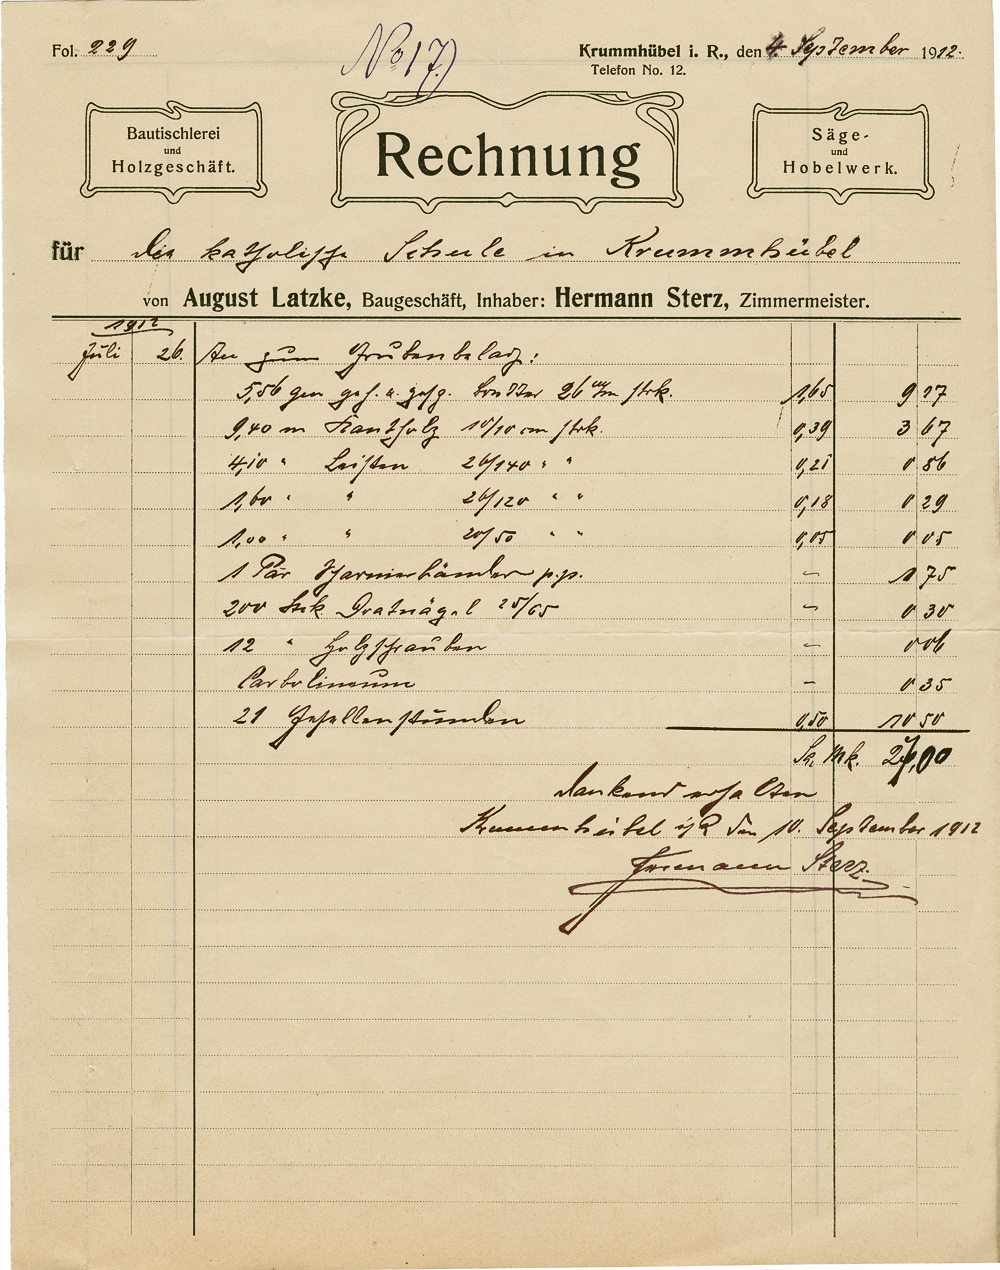 Fol. 229
No 17.)
Krummhübel i. R., den 4. September 1912.
Telefon No. 12.
Bautischlerei
und
Holzgeschäft.
Rechnung
Säge-
und
Hobelwerk.
für die katholische Schule in Krummhübel
von August Latzke, Baugeschäft, Inhaber: Hermann Sterz, Zimmermeister.
1912
Juli 26. An zum Grubenbelag:
5,56 qm geh. u. gefg. Bretter 26 m/m strk. 1,65 9 17
9,40 m Kantholz 10/10 cm strk. 0,39 3 67
4,10 " Leisten 26/140 " " 0,21 0 86
1,60 " " 26/120 " " 0,18 0 29
1,00 " " 20/50 " " 0,05 0 05
1 Par Scharnierbänder p.p. – 1 75
200 Stck Dratnägel 25/65 – 0 30
12 " Holzschrauben – 0 06
Carbolineum – 0 35
21 Gesellenstunden 0,50 10 50
Sa. Mk. 27,00
dankend erhalten
Krummhübel i/R den 10. September 1912
Hermann Sterz.